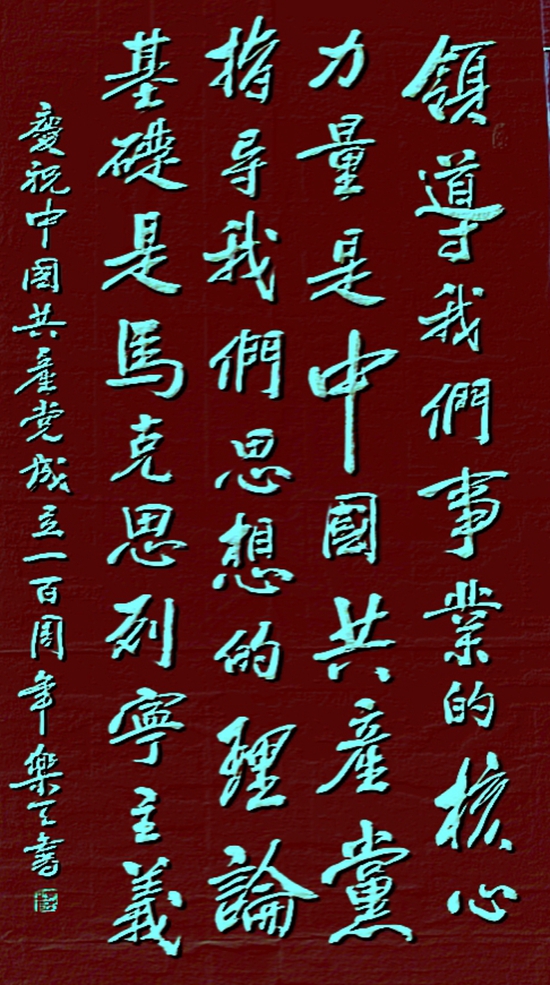 領導我們事業的核心
力量是中國共產黨
指导我們思想的理論
基礎是馬克思列寧主義
慶祝中國共産党成立一百周年樂天書